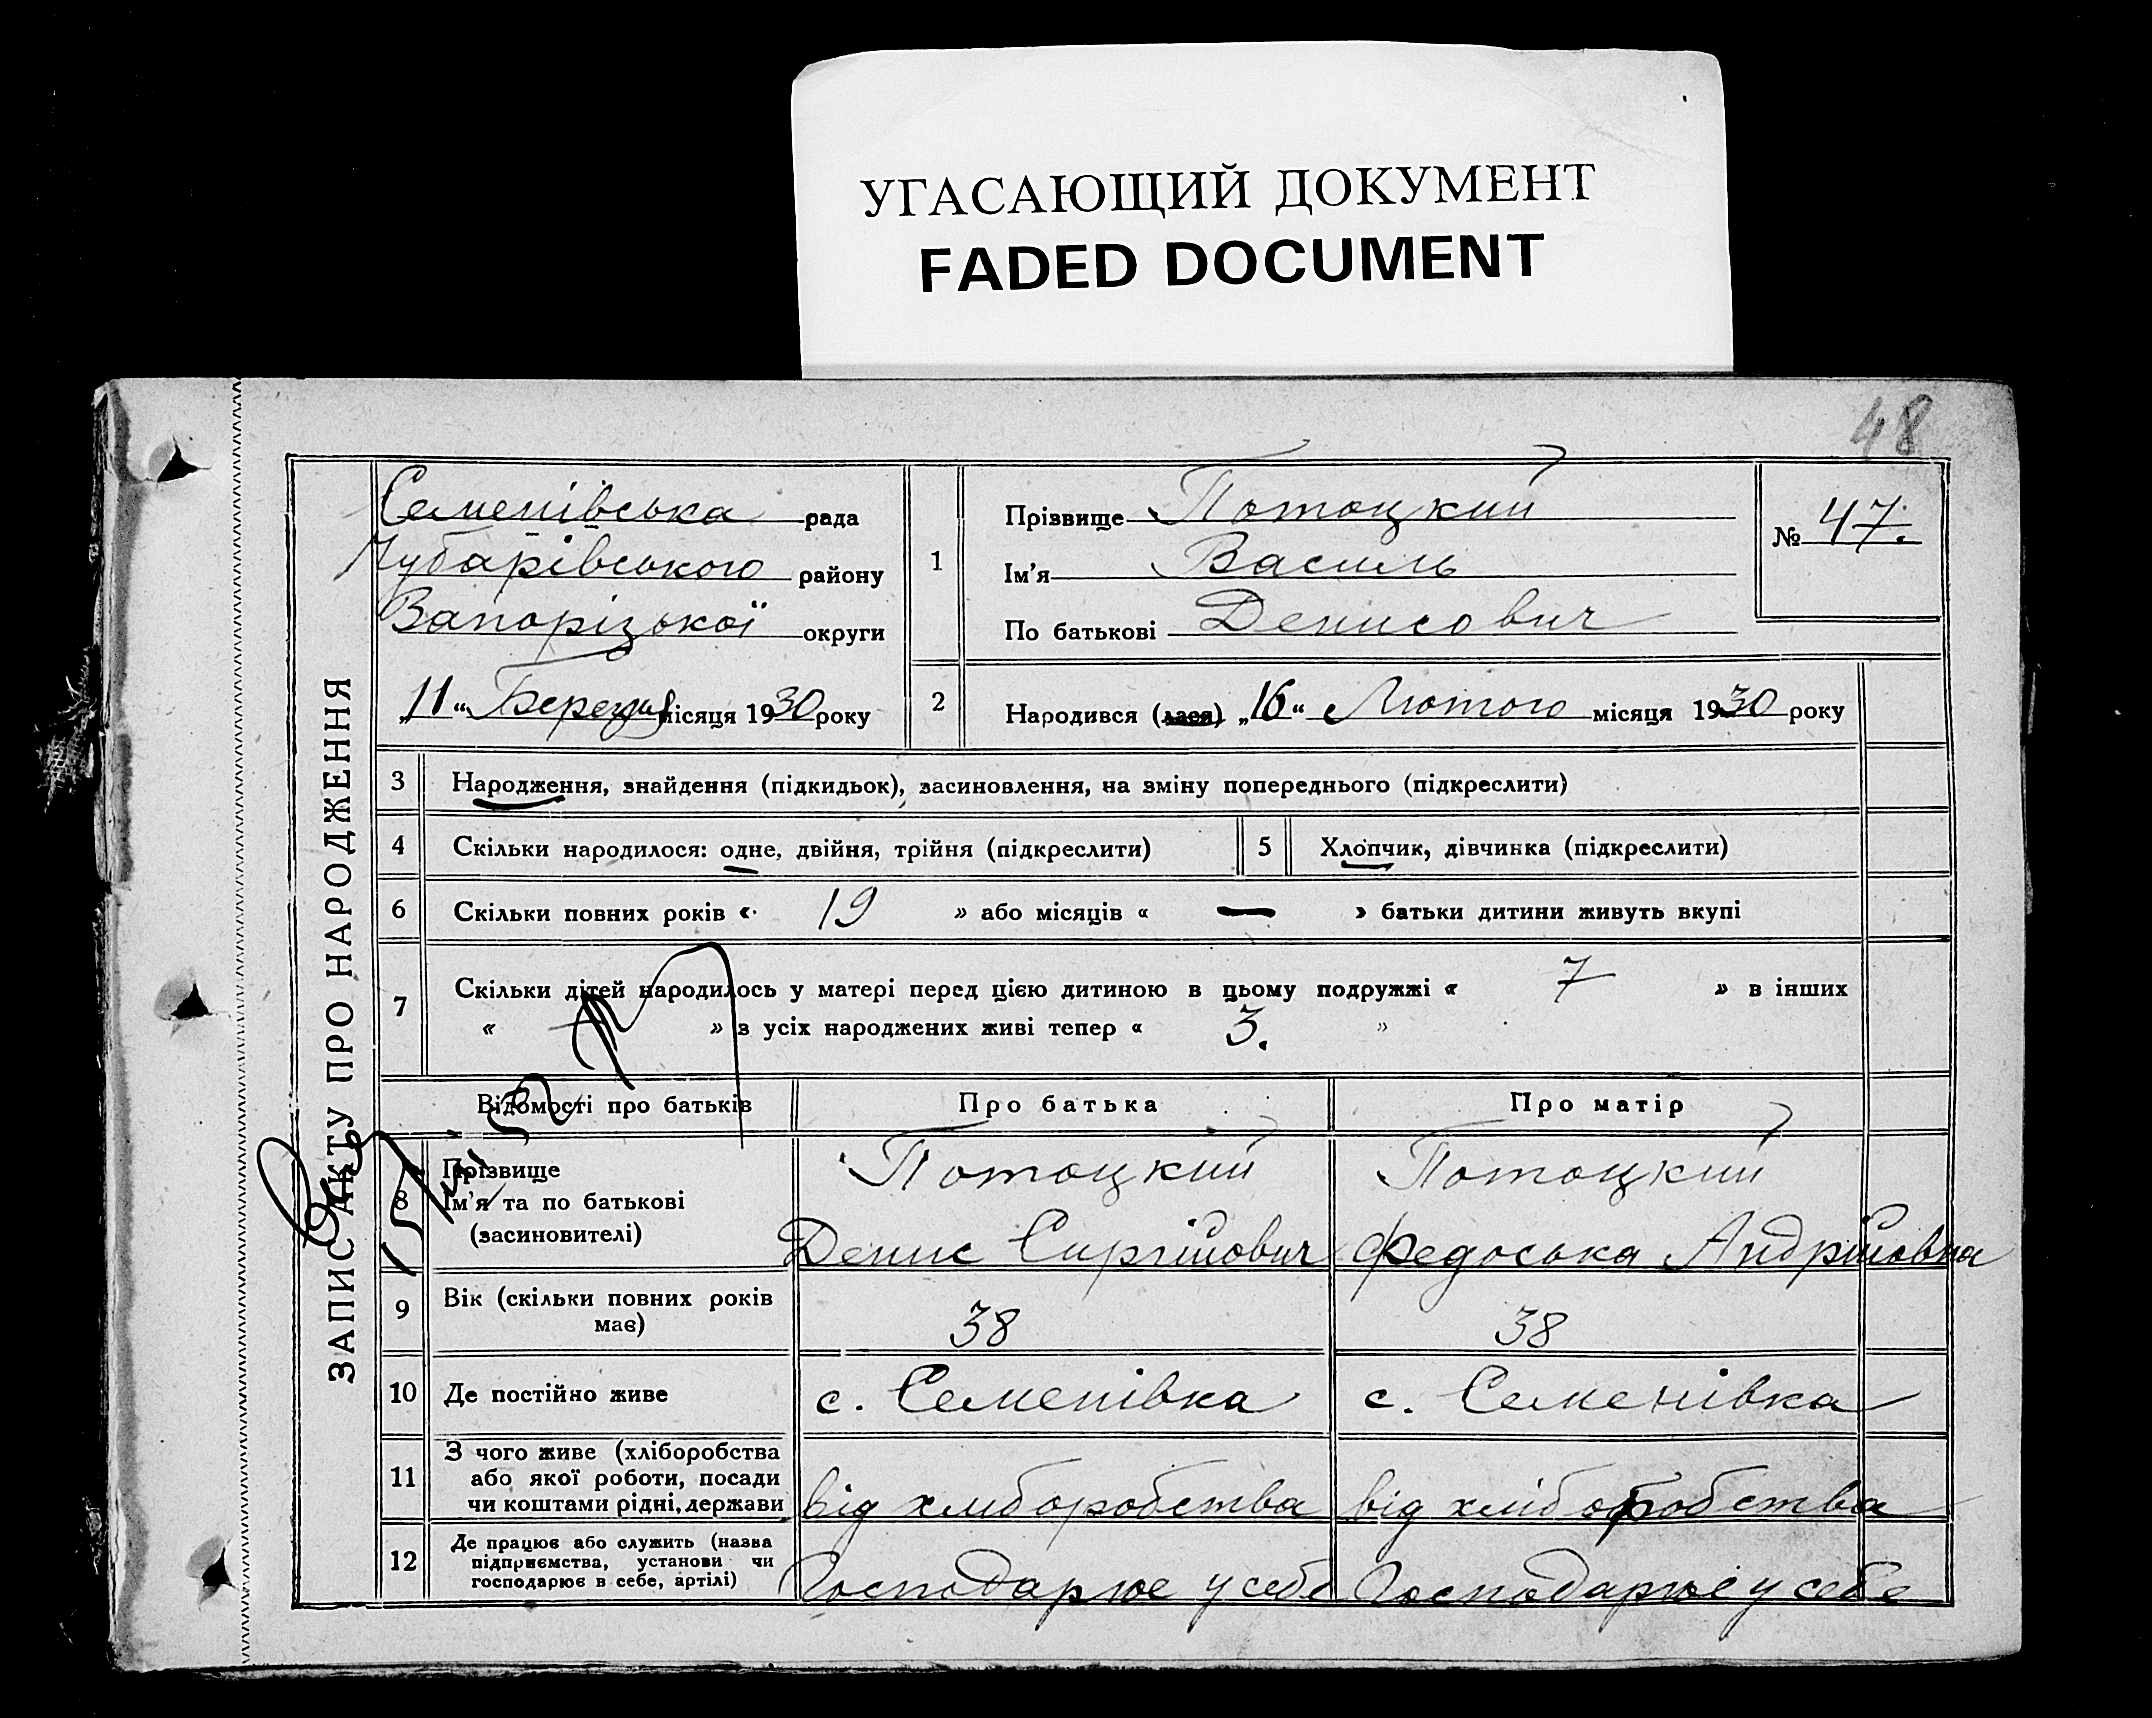 УГАСАЮЩИЙ ДОКУМЕНТ
FADED DOCUMENT
48
ЗАПИС АКТУ ПРО НАРОДЖЕННЯ
Семенівська рада
Чубарівського району
Запорізької округи
„11“ Березня місяця 1930 року
1
Прізвище Потоцкий
Ім'я Василь
По батькові Денисович
№ 47.
2
Народився (лася) „16“ Лютого місяця 1930 року
3 Народження, знайдення (підкидьок), засиновлення, на зміну попереднього (підкреслити)
4 Скільки народилося: одне, двійня, трійня (підкреслити)
5 Хлопчик, дівчинка (підкреслити)
6 Скільки повних років « 19 » або місяців « — » батьки дитини живуть вкупі
7 Скільки дітей народилось у матері перед цією дитиною в цьому подружжі « 7 » в інших
« — » з усіх народжених живі тепер « 3. »
Відомості про батьків
Про батька
Про матір
8 Прізвище
Ім'я та по батькові
(засиновителі)
Потоцкий
Денис Сиргійович
Потоцкий
Федоська Андрійовна
9 Вік (скільки повних років
має)
38
38
10 Де постійно живе
с. Семенівка
с. Семенівка
11 З чого живе (хліборобства
або якої роботи, посади
чи коштами рідні, держави
від хліборобства
від хліборобства
12 Де працює або служить (назва
підприємства, установи чи
господарює в себе, артілі)
Господарює у себе
Господарює у себе